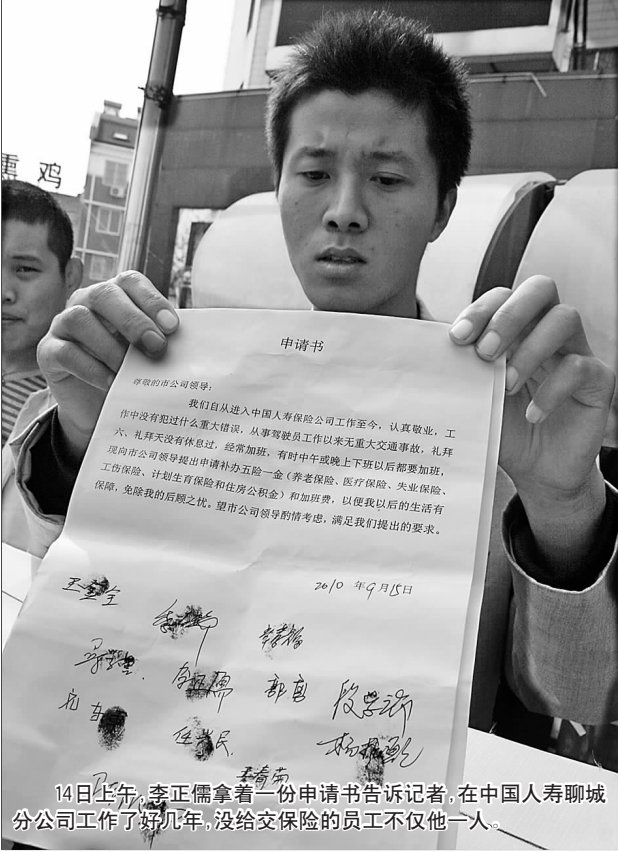 熏鸡
申请书
尊敬的市公司领导：
我们自从进入中国人寿保险公司工作至今，认真敬业，工
作中没有犯过什么重大错误，从事驾驶员工作以来无重大交通事故，礼拜
六、礼拜天没有休息过，经常加班，有时中午或晚上下班以后都要加班，
现向市公司领导提出申请补办五险一金（养老保险、医疗保险、失业保险、
工伤保险、计划生育保险和住房公积金）和加班费，以便我以后的生活有
保障，免除我的后顾之忧。望市公司领导酌情考虑，满足我们提出的要求。
2010 年9月15日
郭富
14日上午，李正儒拿着一份申请书告诉记者，在中国人寿聊城
分公司工作了好几年，没给交保险的员工不仅他一人。